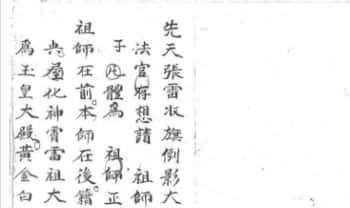 先天張雷淑旗倒影大
法官存想請 祖師
子 體為 祖師正
祖師在前本師在後籍
典 化神霄雷祖大
為玉皇大殿黃金白